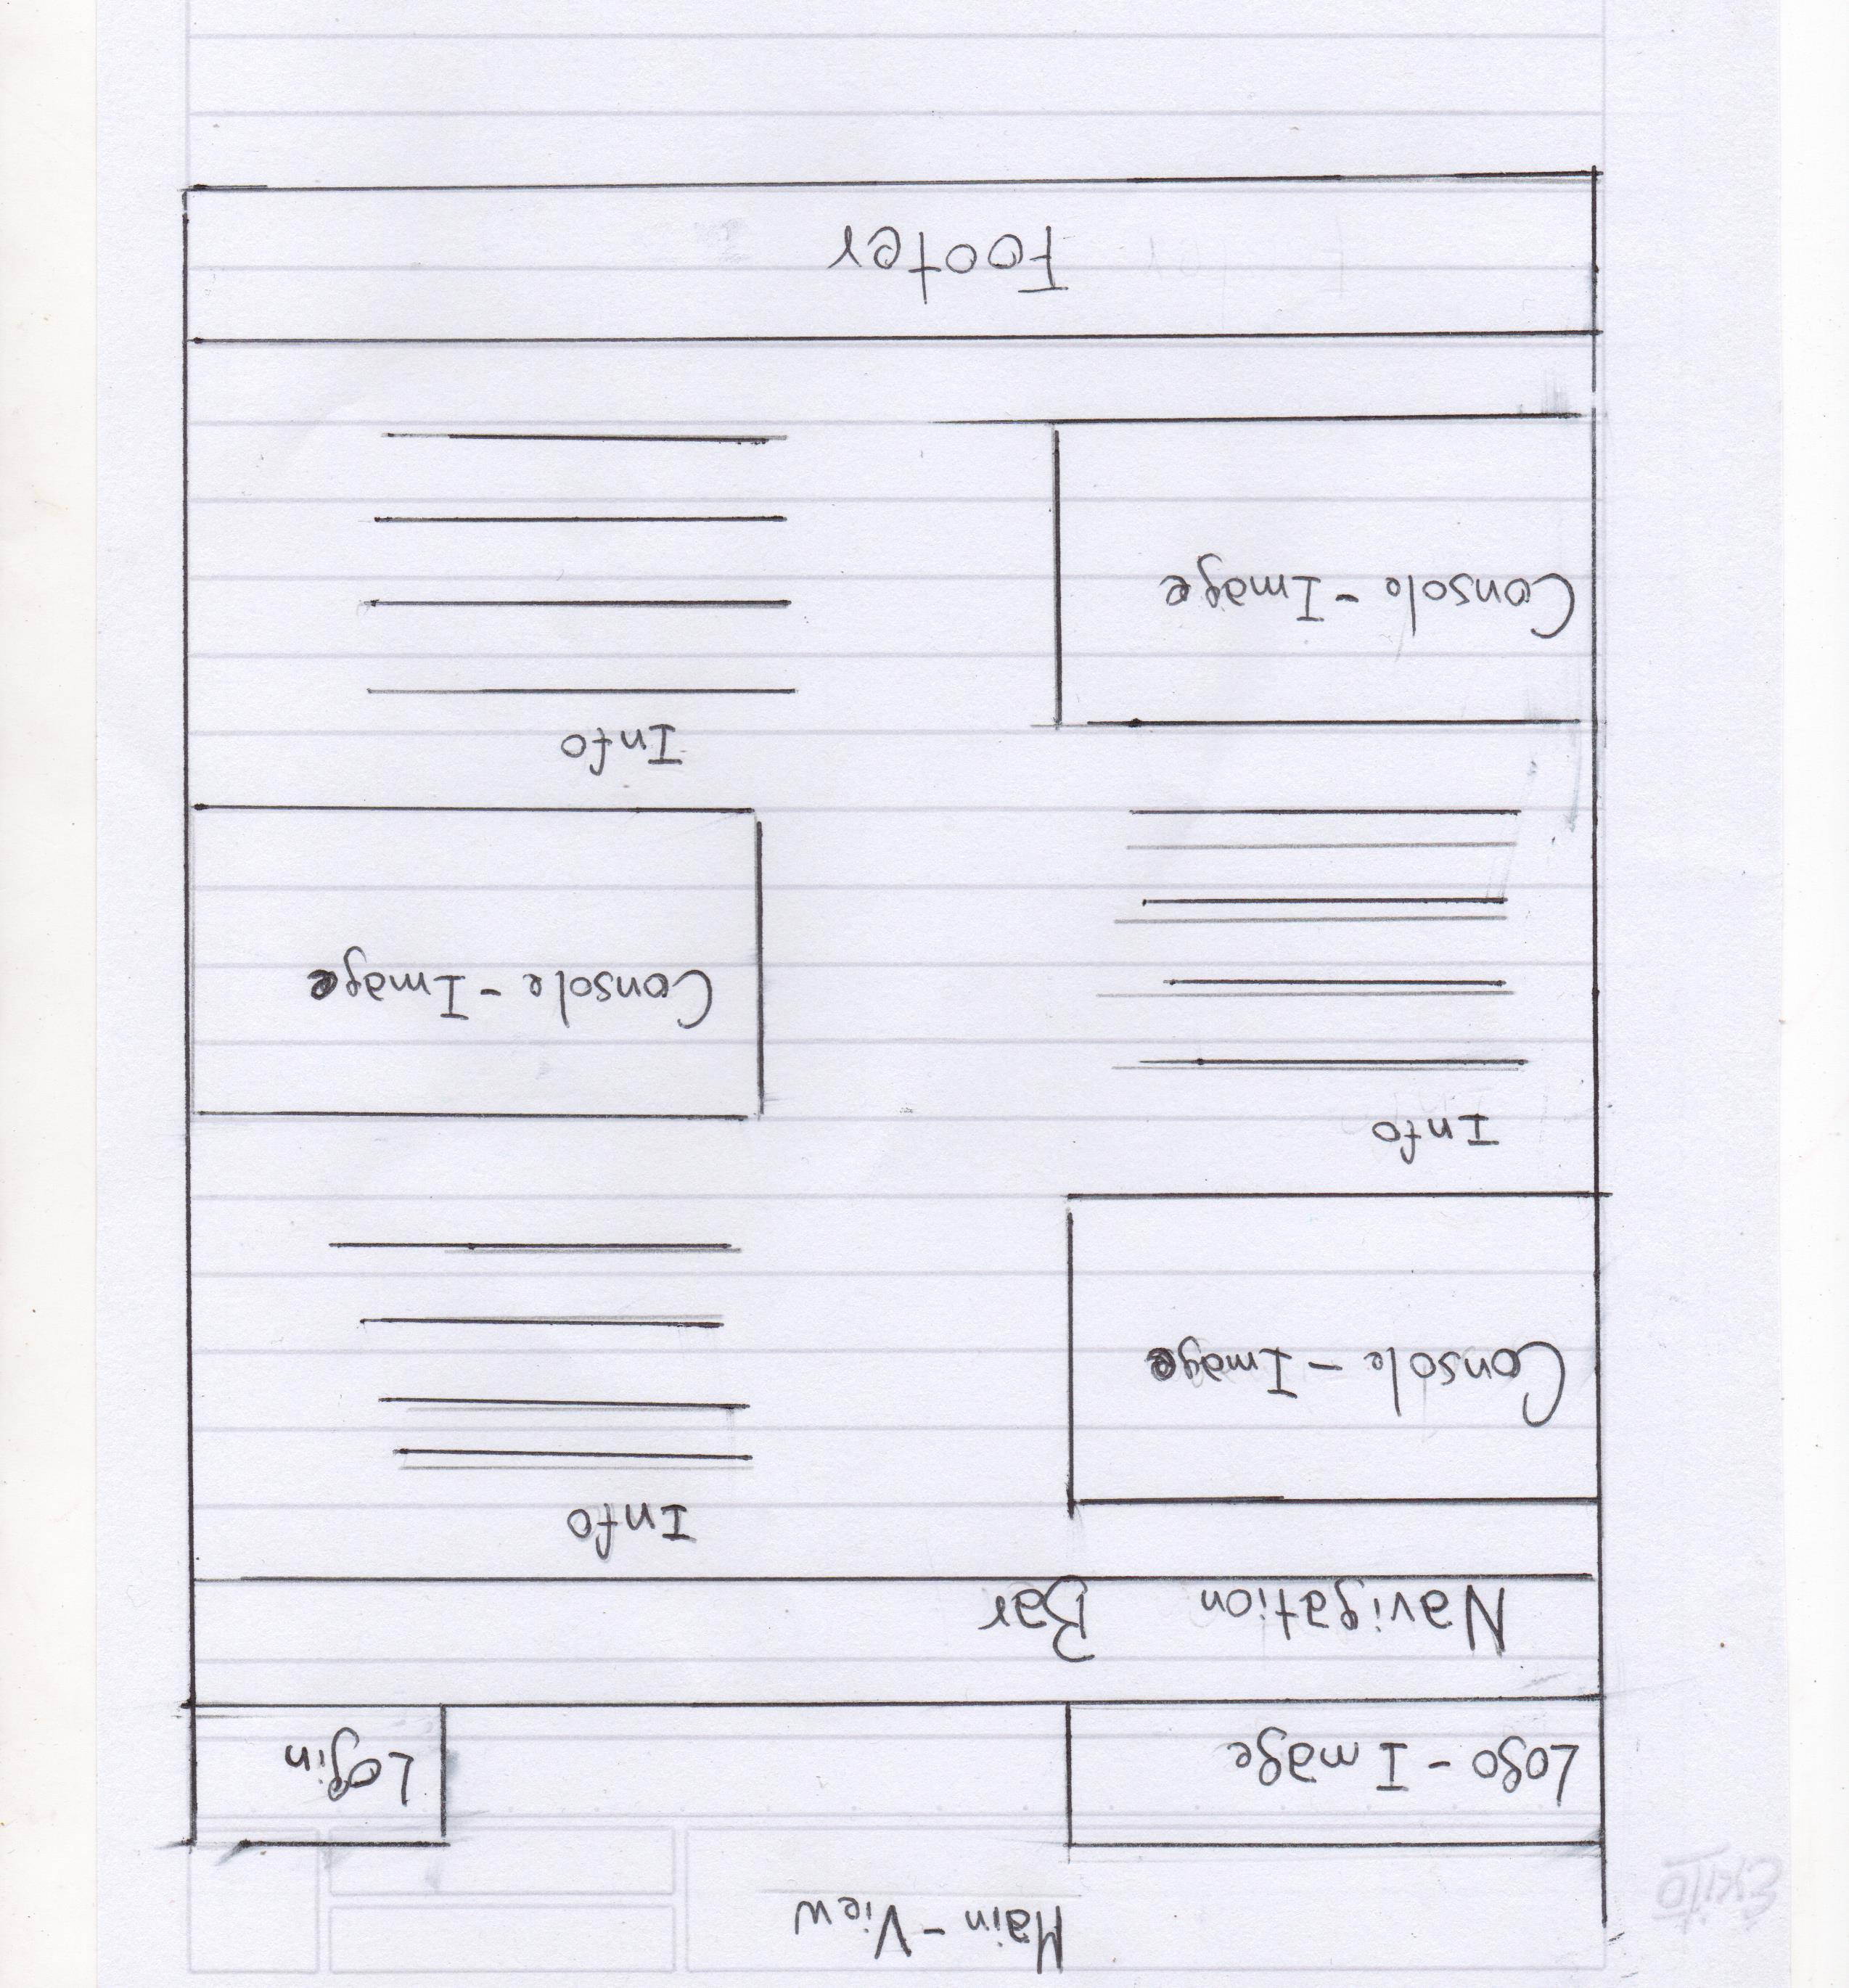 Main-View
Logo-Image
Login
Navigation Bar
Console-Image
Info
Info
Console-Image
Console-Image
Info
Footer